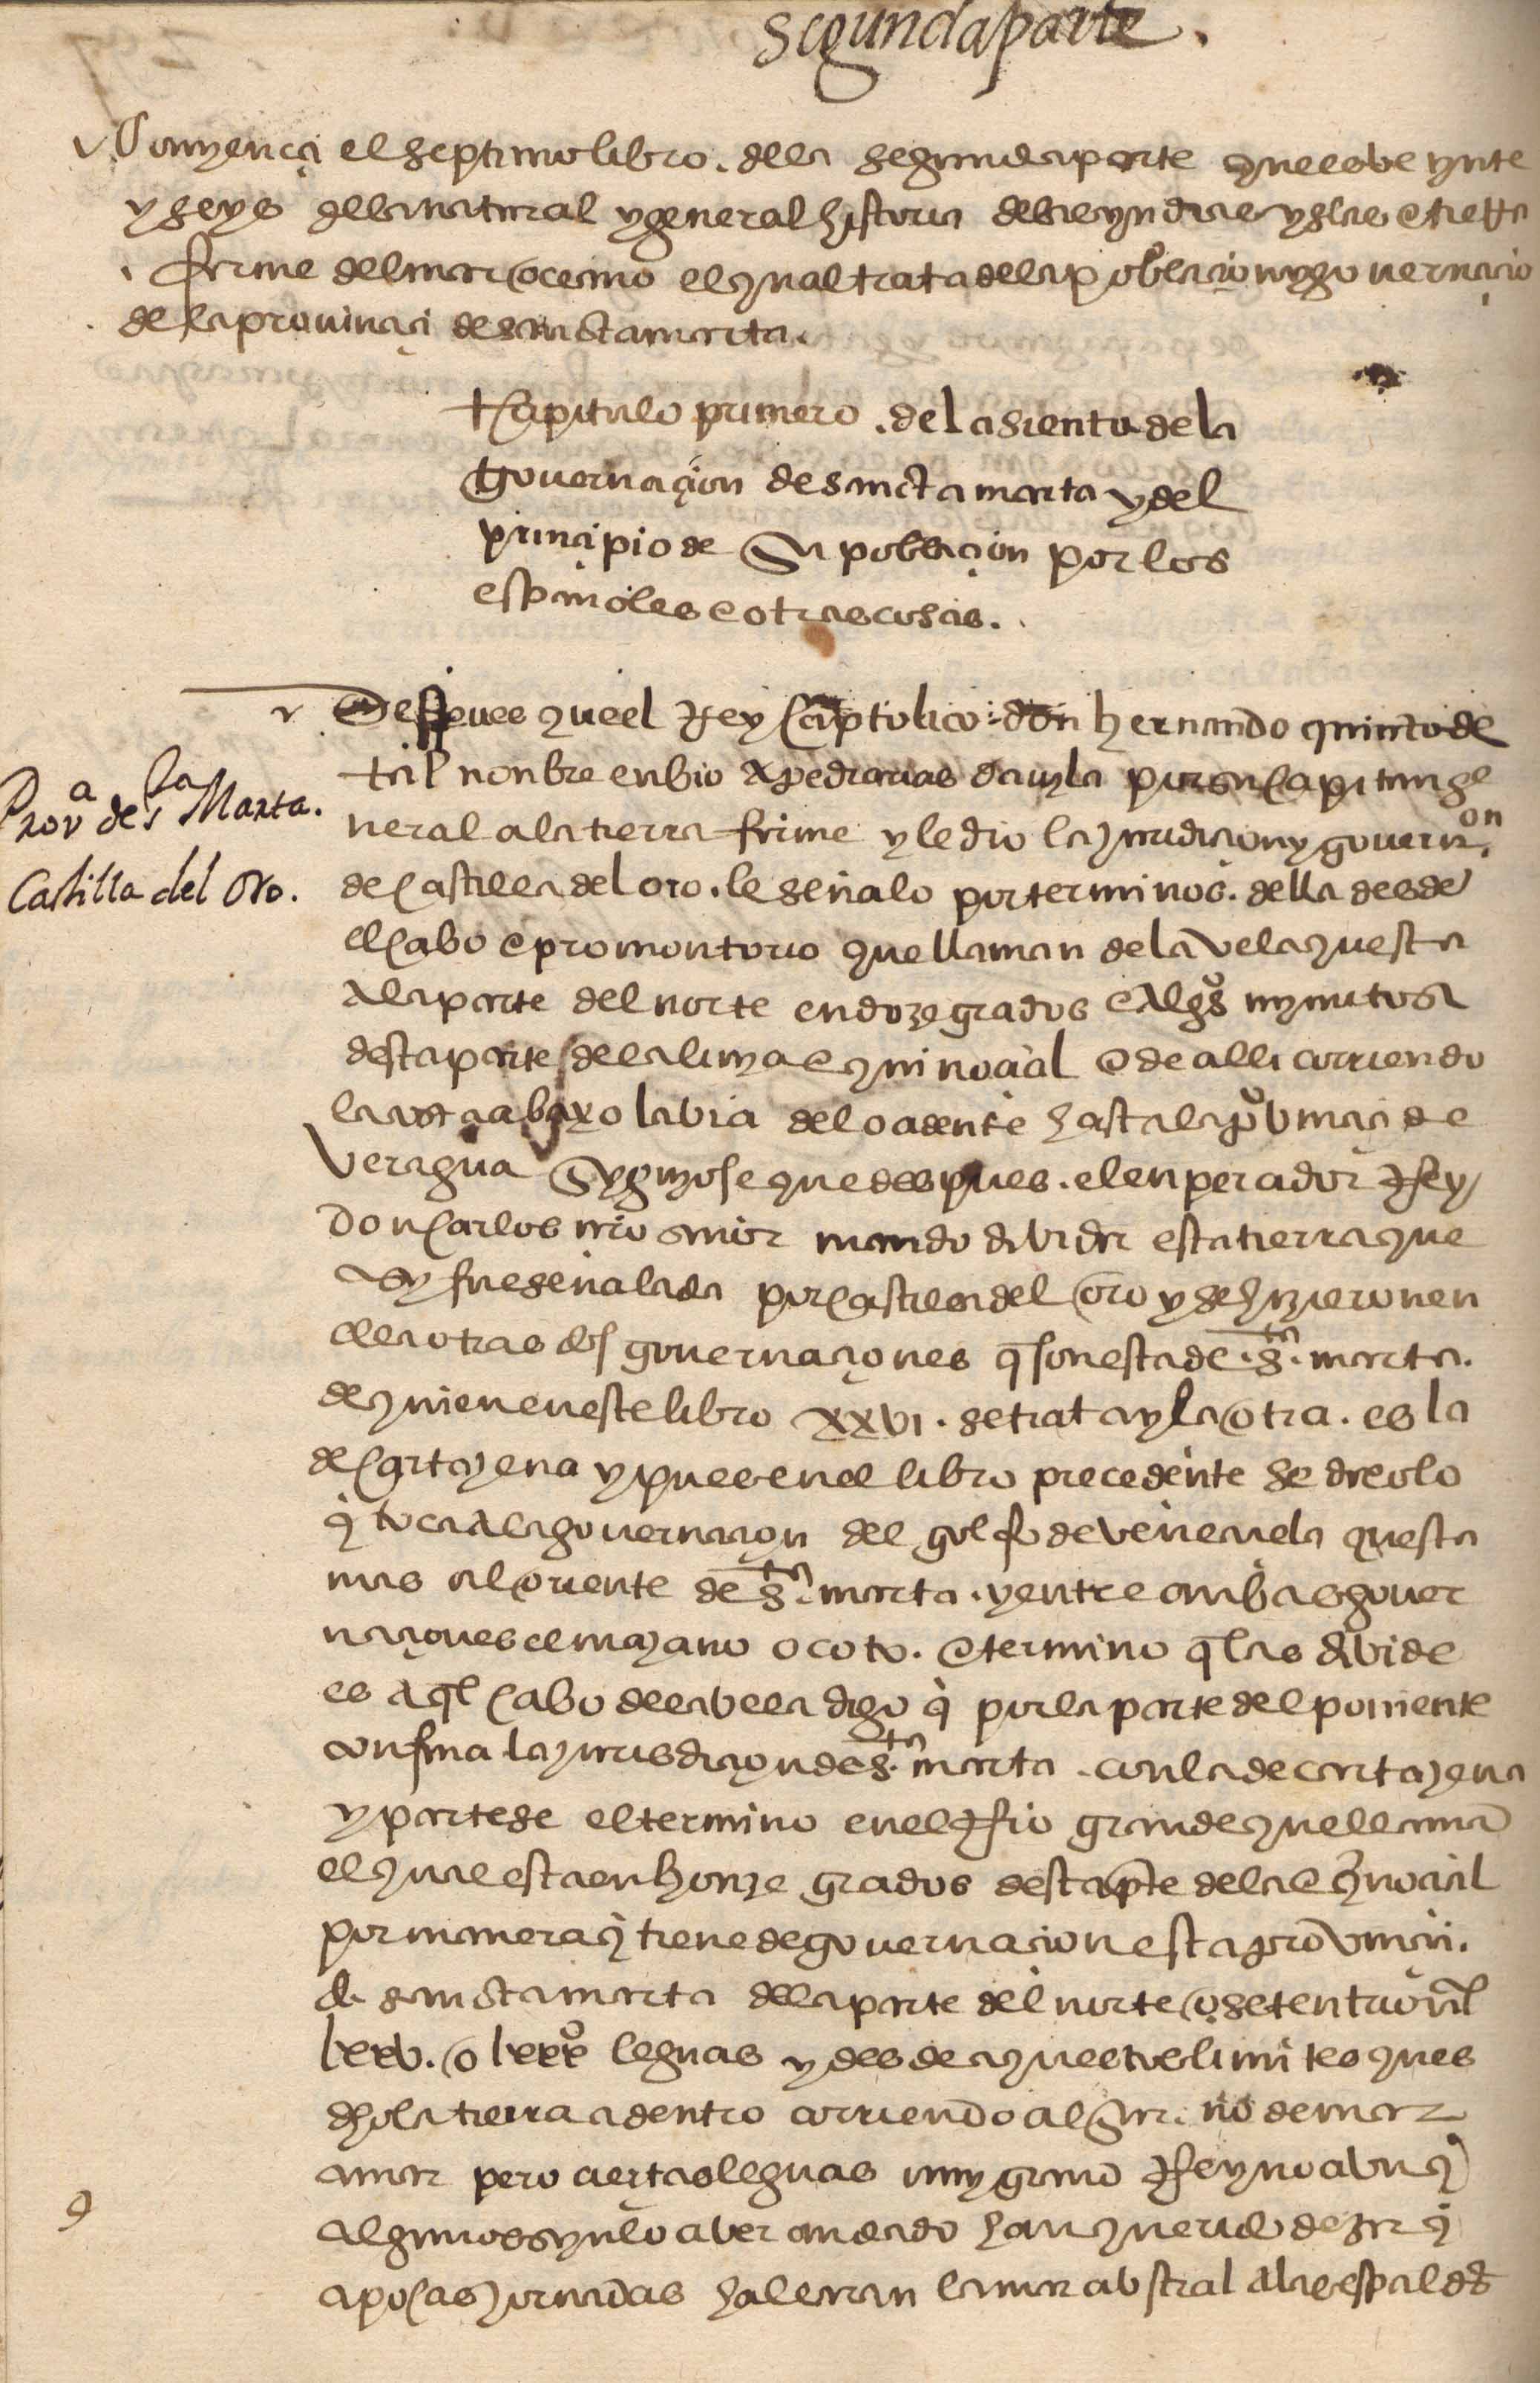 segunda parte.
Comiença el septimo libro. dela segunda parte que es veynte
y seys dela natural y general historia delas yndias yslas e tierra
firme del mar oceano el qual trata dela poblaçion y governaçio
de la provinçia de sancta marta.
Capitulo primero. del asiento de la
governaçion de sancta marta y del
prinçipio de su poblaçion por los
españoles e otras cosas.
Despues que el Rey catolico don hernando quinto de
tal nonbre enbio a pedrarias davyla por su capitan ge
neral a la tierra firme y le dio la governon
Prova de sta Marta.
Castilla del Oro.
de castilla del oro. le señalo por terminos. della desde
el cabo e promontorio que llaman de la vela questa
a la parte del norte en doze grados e algos mynutos
desta parte de la linya equinoçial e de alli corriendo
la costa abaxo la via del oçidente hasta la provinçia de
veragua syguyose que despues. el enperador Rey
don carlos nro señor mando dividir esta tierra que
asy fue señalada por castilla del oro y se hizieron en
ella otras dos governaçiones q son esta de .sta. marta.
de quien en este libro XXVI. se trata y la otra. es la
de cartajena y pues en el libro precedente se dixo lo
q toca a la governaçion del golfo de veneçuela questa
mas al oriente de sta. marta. y entre anbas gover
naçiones el mojano o coto. e termino q las divide
es aql cabo de la vela digo q por la parte del poniente
confina la jurisdiçion de sta marta. con la de cartajena
y partese el termino en el Rio grande que llaman
el qual esta en honze grados desta pte de la eqnoçial
por manera q tiene de governacion esta provinçia.
de sancta marta de la parte del norte o setentrional
lxxv. o lxxxo leguas y desde aquestos limites ques
dho la tierra adentro corriendo al sur. no de mar
a mar pero çiertas leguas muy grand Reyno avnq
algunos syn lo aver andado han querido dezir q
a pocas jornadas hallaran la mar abstral a las espaldas